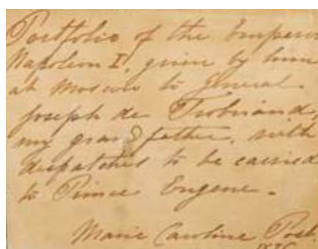 Portfolio of the Emperor
Napoleon I, given by him
at Moscow to General
Joseph de Trobriand,
my grandfather, with
despatches to be carried
to Prince Eugene.
Marie Caroline Post